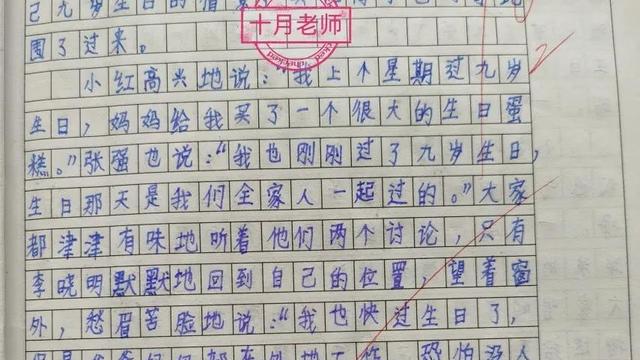 己九岁生日的
十月老师
围了过来。
小红高兴地说：“我上个星期过九岁
生日，妈妈给我买了一个很大的生日蛋
糕。”张强也说：“我也刚刚过了九岁生日，
生日那天是我们全家人一起过的。”大家
都津津有味地听着他们两个讨论，只有
李晓明默默地回到自己的位置，望着窗
外，愁眉苦脸地说：“我也快过生日了，